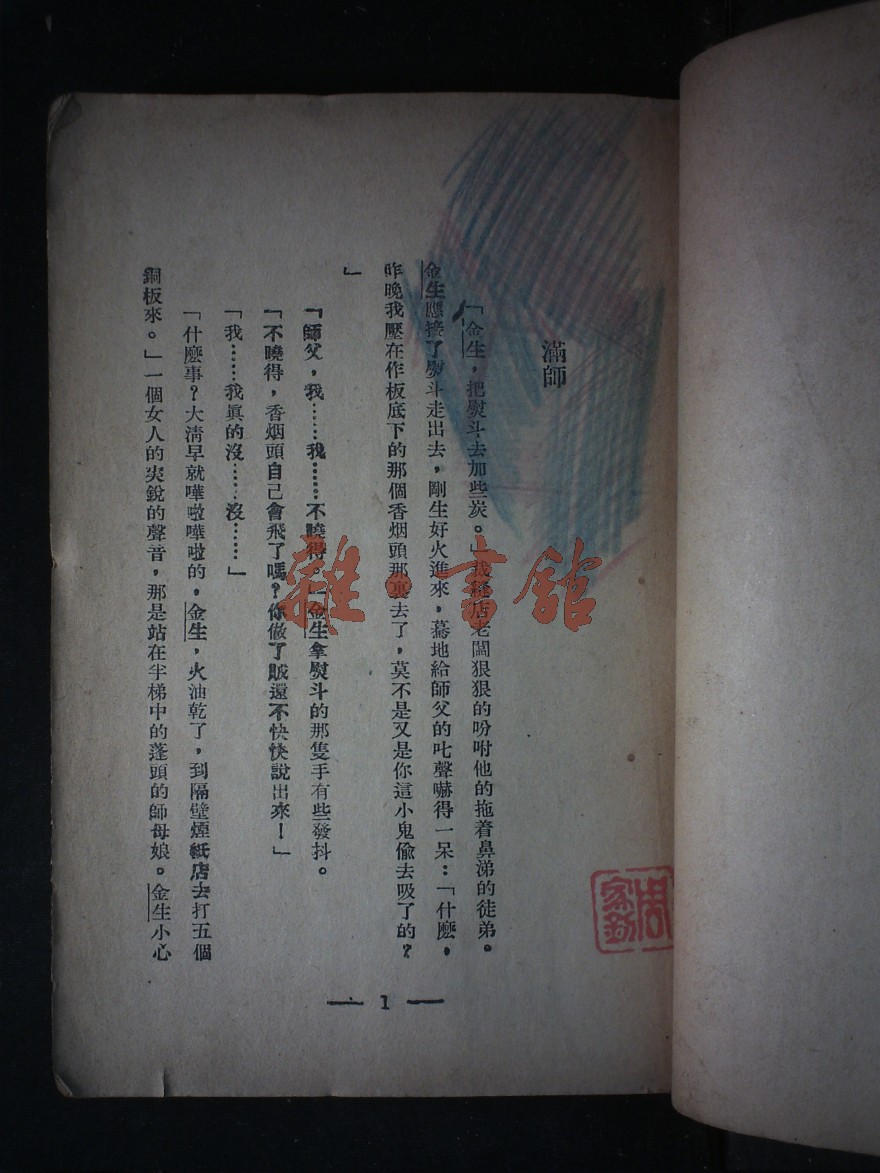 滿師
「金生，把熨斗去加些炭。」裁縫店老闆狠狠的吩咐他的拖着鼻涕的徒弟。
金生應接了熨斗走出去，剛生好火進來，驀地給師父的叱聲嚇得一呆：「什麼，
昨晚我壓在作板底下的那個香烟頭那裏去了，莫不是又是你這小鬼偷去吸了的？
」
「師父，我……我……不曉得。」金生拿熨斗的那隻手有些發抖。
「不曉得，香烟頭自己會飛了嗎？你做了賊還不快快說出來！」
「我……我眞的沒……沒……」
「什麼事？大淸早就嘩啦嘩啦的，金生，火油乾了，到隔壁煙紙店去打五個
銅板來。」一個女人的尖銳的聲音，那是站在半梯中的蓬頭的師母娘。金生小心
— 1 —
雜·書館